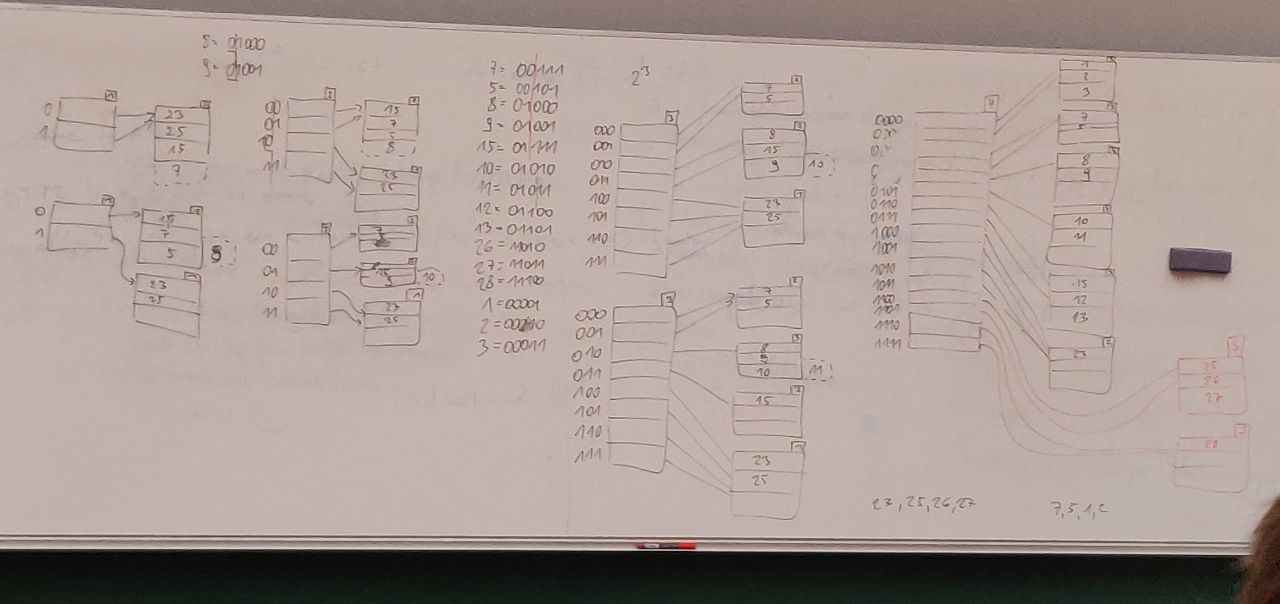 8 = 01000
9 = 01001
0
1
1
23
25
15
7
0
1
1
15
7
5
9
23
25
00
01
10
11
2
15
7
5
8
23
25
00
01
10
11
2
15
9
10
23
25
1
7 = 00111
5 = 00101
8 = 01000
9 = 01001
15 = 01111
10 = 01010
11 = 01011
12 = 01100
13 = 01101
26 = 11010
27 = 11011
28 = 11100
1 = 00001
2 = 00010
3 = 00011
2³
3
000
001
010
011
100
101
110
111
7
5
8
15
9
10
23
25
1
3
000
001
010
011
100
101
110
111
7
5
2
8
9
10
3
11
15
3
23
25
1
4
0000
0101
0110
0111
1000
1001
1010
1011
1100
1101
1110
1111
1
2
3
7
5
8
9
10
11
15
12
13
23
25
26
27
3
28
3
23, 25, 26, 27
7, 5, 1, 2